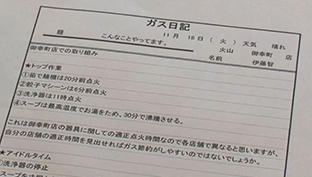 ガス日記
題 こんなことやってます。 11月 18日 (火) 天気 晴れ
火山 御幸町 店
御幸町店での取り組み 伊藤智
★トップ作業
①茹で麺機は20分前点火
②餃子マシーンは6分前点火
③洗浄器は11時点火
④スープは最高温度でお湯をため、30分で沸騰させる。
これは御幸町店の器具に関しての適正点火時間なので各店舗で異なると思いますが、
自分の店舗の適正時間を見出せればガス節約がしやすいのではないでしょうか。
★アイドルタイム
①洗浄器の停止